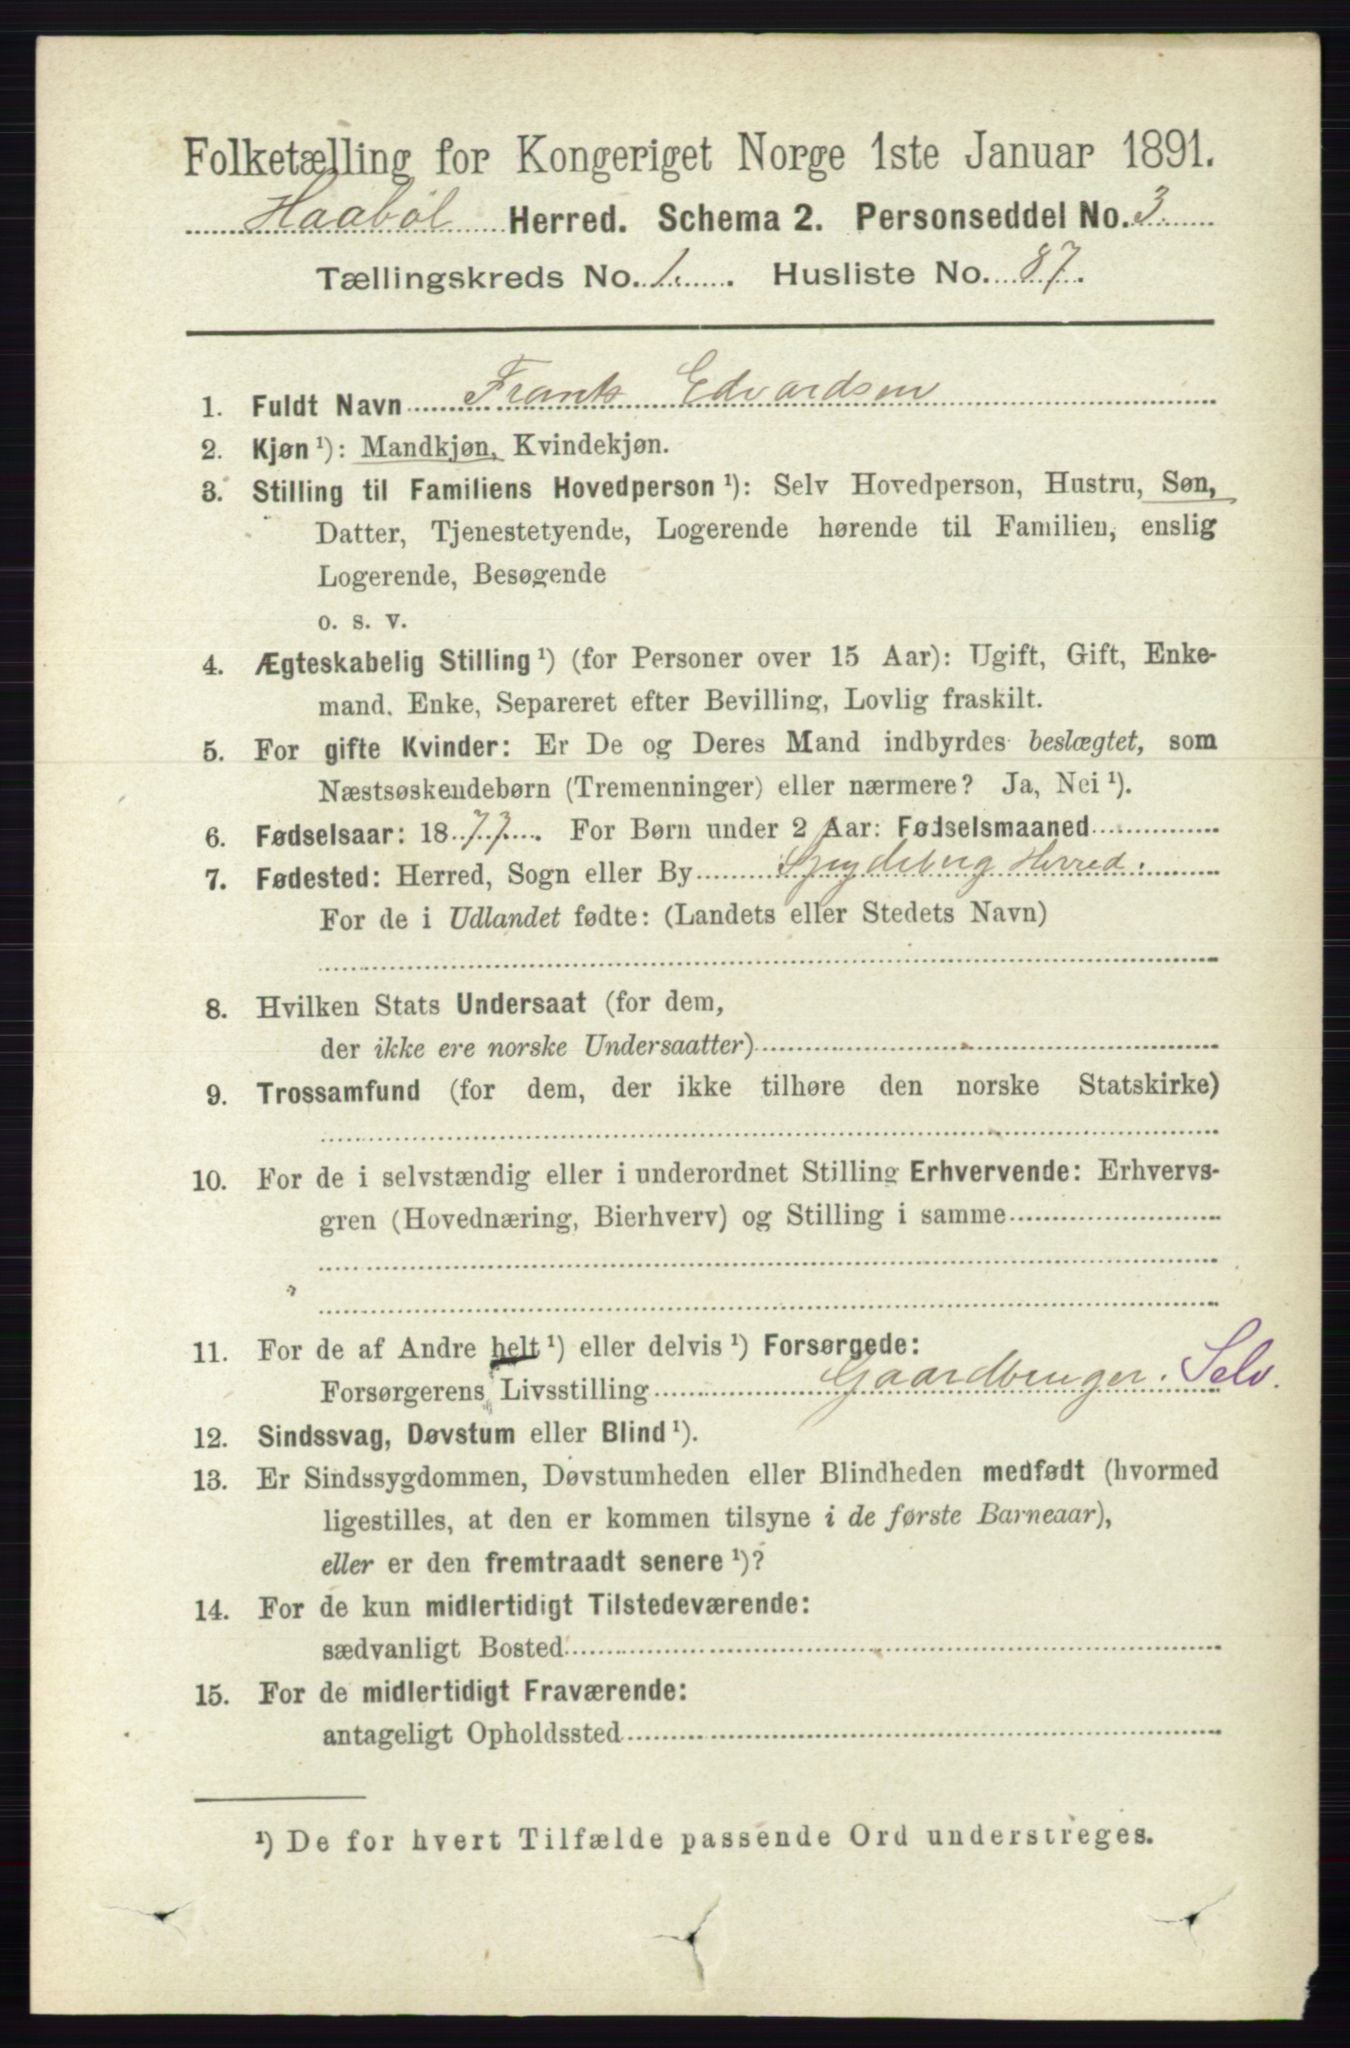 Folketælling for Kongeriget Norge 1ste Januar 1891.
Haabøl Herred. Schema 2. Personseddel No. 3
Tællingskreds No. 1. Husliste No. 87.
1. Fuldt Navn Frants Edvardsen
2. Kjøn ¹): Mandkjøn, Kvindekjøn.
3. Stilling til Familiens Hovedperson ¹): Selv Hovedperson, Hustru, Søn,
Datter, Tjenestetyende, Logerende hørende til Familien, enslig
Logerende, Besøgende
o. s. v.
4. Ægteskabelig Stilling ¹) (for Personer over 15 Aar): Ugift, Gift, Enke-
mand, Enke, Separeret efter Bevilling, Lovlig fraskilt.
5. For gifte Kvinder: Er De og Deres Mand indbyrdes beslægtet, som
Næstsøskendebørn (Tremenninger) eller nærmere? Ja, Nei ¹).
6. Fødselsaar: 1877. For Børn under 2 Aar: Fødselsmaaned
7. Fødested: Herred, Sogn eller By Spydeberg Herred.
For de i Udlandet fødte: (Landets eller Stedets Navn)
8. Hvilken Stats Undersaat (for dem,
der ikke ere norske Undersaatter)
9. Trossamfund (for dem, der ikke tilhøre den norske Statskirke)
10. For de i selvstændig eller i underordnet Stilling Erhvervende: Erhvervs-
gren (Hovednæring, Bierhverv) og Stilling i samme
11. For de af Andre helt ¹) eller delvis ¹) Forsørgede:
Forsørgerens Livsstilling Gaardbruger. Selv.
12. Sindssvag, Døvstum eller Blind ¹).
13. Er Sindssygdommen, Døvstumheden eller Blindheden medfødt (hvormed
ligestilles, at den er kommen tilsyne i de første Barneaar),
eller er den fremtraadt senere ¹)?
14. For de kun midlertidigt Tilstedeværende:
sædvanligt Bosted
15. For de midlertidigt Fraværende:
antageligt Opholdssted
¹) De for hvert Tilfælde passende Ord understreges.